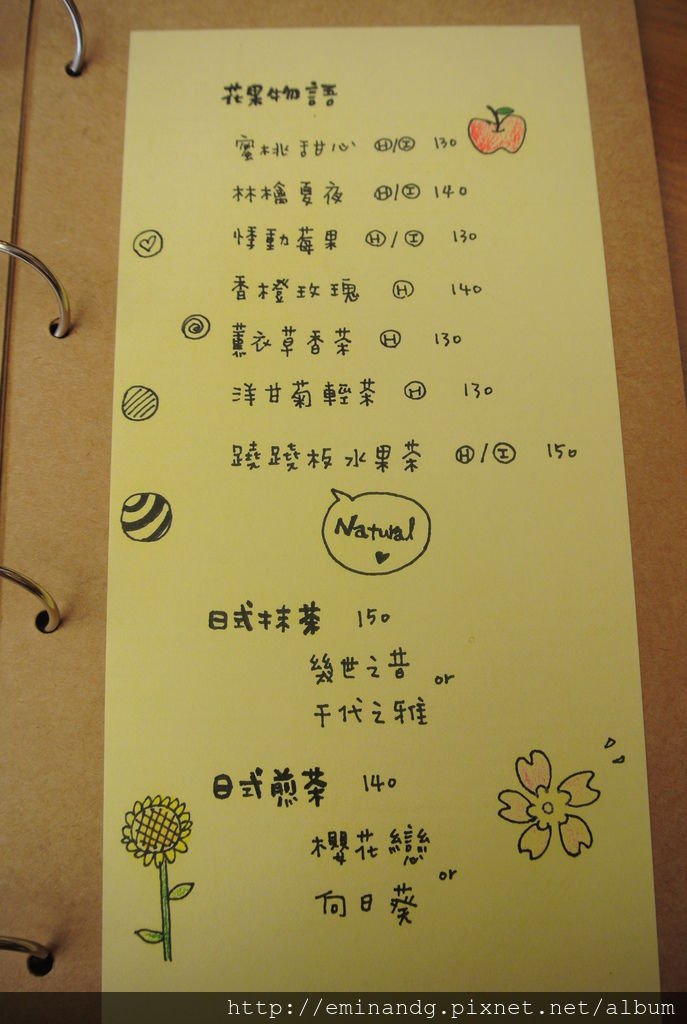 花果物語
蜜桃甜心 Ⓗ/Ⓘ 130
林檎夏夜 Ⓗ/Ⓘ 140
悸動莓果 Ⓗ/Ⓘ 130
香橙玫瑰 Ⓗ 140
薰衣草香茶 Ⓗ 130
洋甘菊輕茶 Ⓗ 130
蹺蹺板水果茶 Ⓗ/Ⓘ 150
Natural
日式抹茶 150
幾世之昔
or
千代之雅
日式煎茶 140
櫻花戀
or
向日葵
http://eminandg.pixnet.net/album